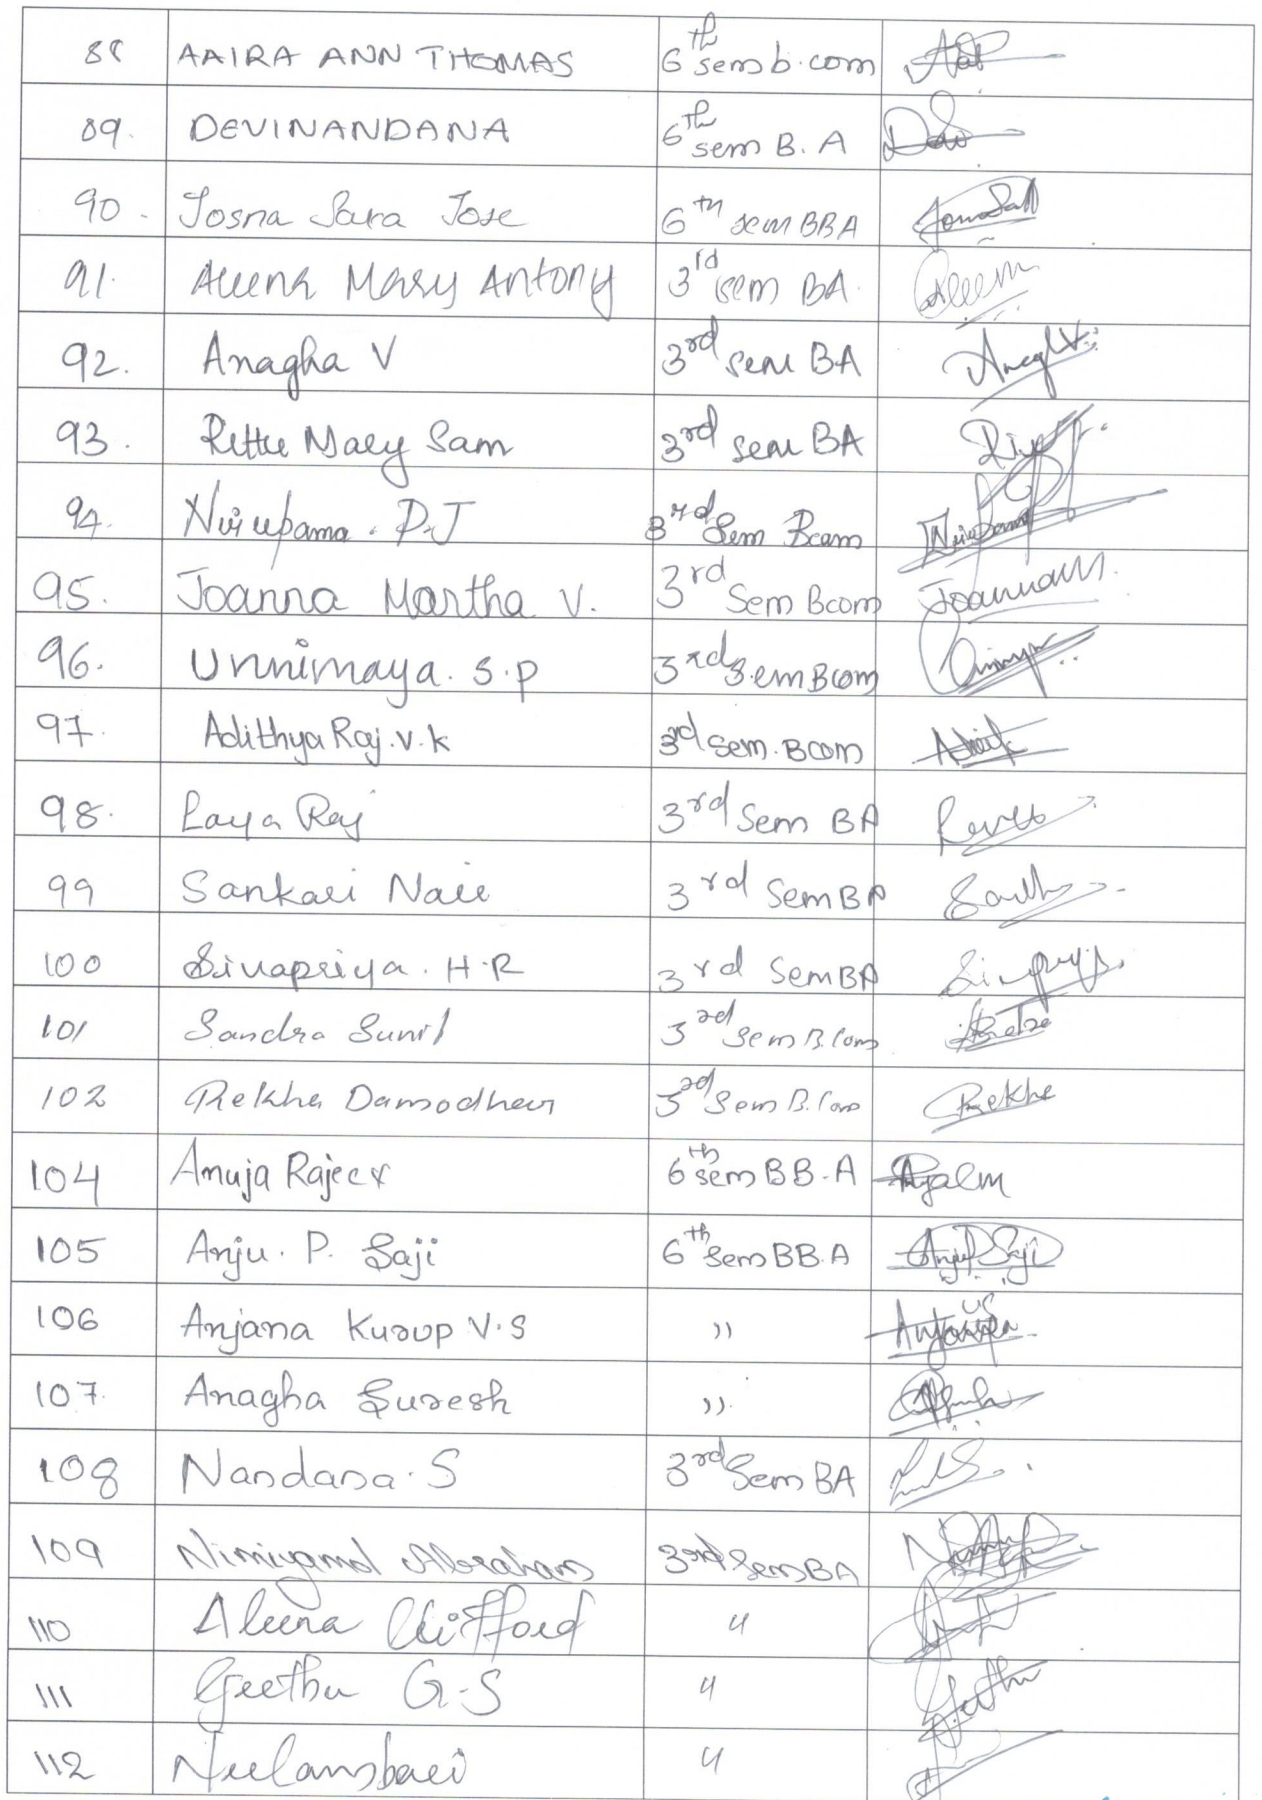 88 AAIRA ANN THOMAS 6th sem b.com
89. DEVINANDANA 6th sem B.A
90. Josna Sara Jose 6th sem BBA
91. Aleena Mary Antony 3rd sem BA. Aleena
92. Anagha V 3rd sem BA
93. Rittu Mary Sam 3rd sem BA
94. Nirupama . P.J 3rd Sem Bcom
95. Joanna Martha V. 3rd Sem Bcom
96. Unnimaya. S.P 3rd Sem Bcom
97. Adithya Raj.V.K 3rd Sem. Bcom
98. Laya Raj 3rd Sem BA
99 Sankari Nair 3rd Sem BA
100 Sivapriya. H.R 3rd Sem BA
101 Sandra Sunil 3rd Sem B.Com
102 Rekha Damodhar 3rd Sem B.Com Rekha
104 Anuja Rajeev 6th sem BB.A
105 Anju. P. Saji 6th Sem BB.A Anju P Saji
106 Anjana Kurup V.S "
107. Anagha Suresh ".
108 Nandana.S 3rd Sem BA
109 Nimiyamol Abraham 3rd Sem BA
110 Aleena Clifford "
111 Geethu G.S " Geethu
112 Neelambari "